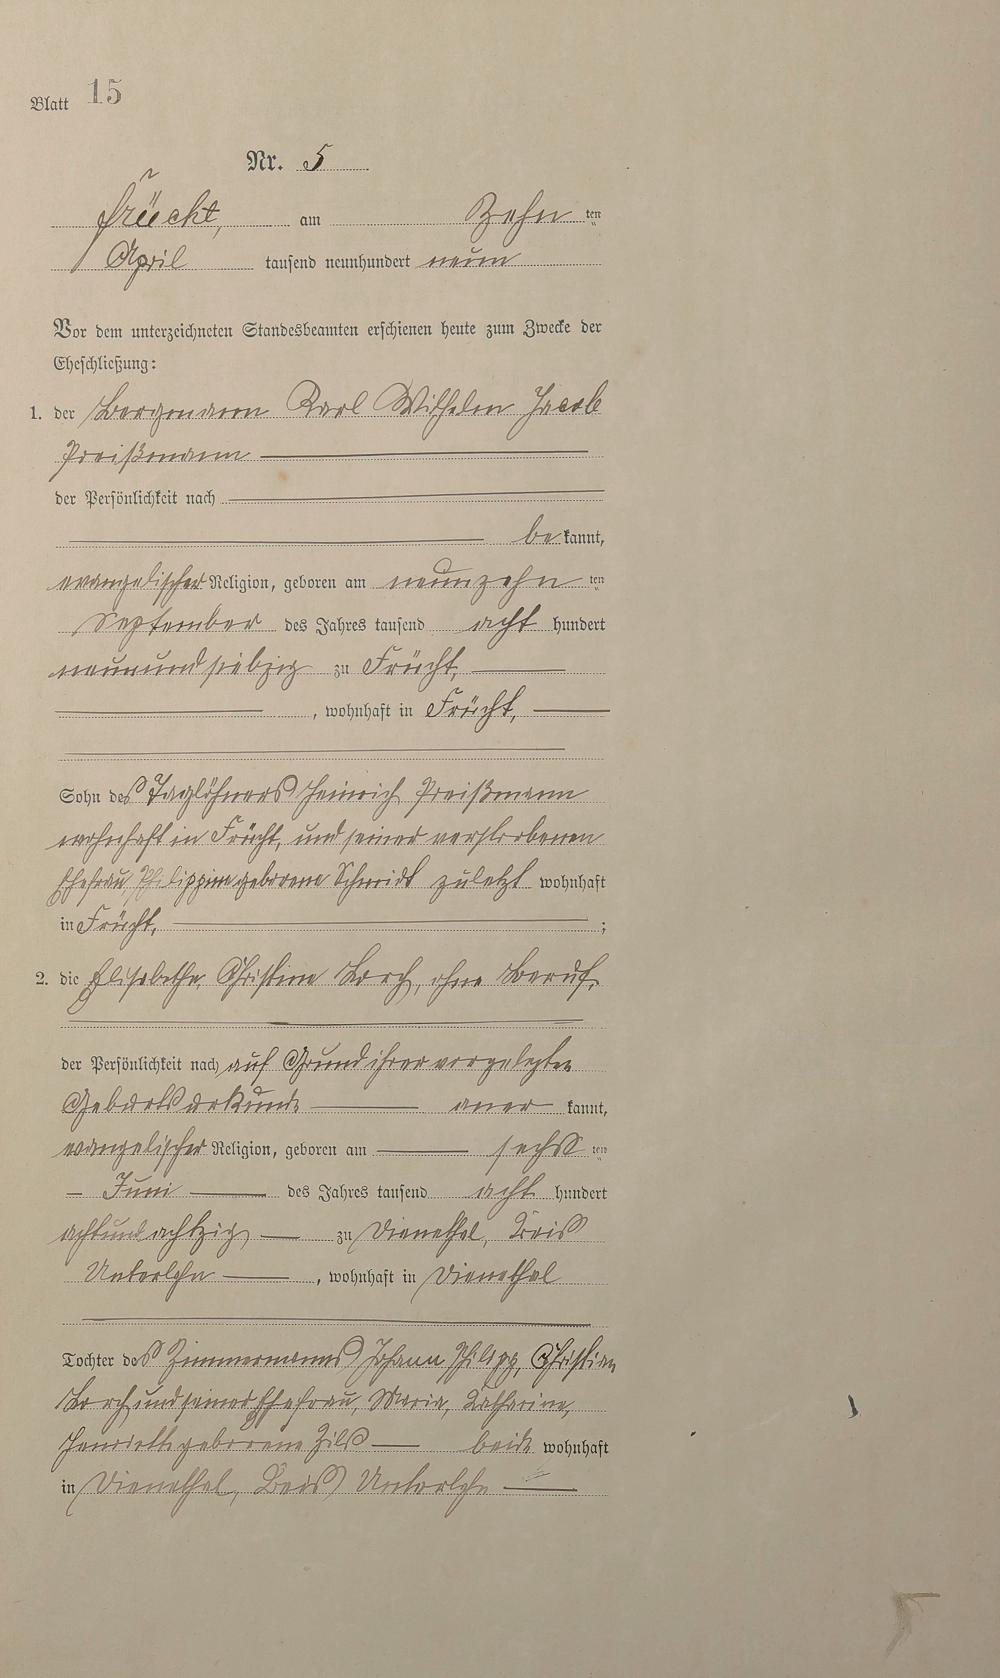 Blatt 15
Nr. 5
Früecht, am Zehn ten
April tausend neunhundert neun
Vor dem unterzeichneten Standesbeamten erschienen heute zum Zwecke der
Eheschließung:
1. der Bergmann Karl Wilhelm Jacob
Preißmann
der Persönlichkeit nach
be kannt,
evangelischer Religion, geboren am neunzehn ten
September des Jahres tausend acht hundert
neunundsiebzig zu Frücht,
, wohnhaft in Frücht,
Sohn des Taglöhners Heinrich Preißmann
wohnhaft in Frücht, und seiner verstorbenen
Ehefrau Philippine geborene Schmidt zuletzt wohnhaft
in Frücht, ;
2. die Elisabethe, Christine Lorch, ohne Beruf,
der Persönlichkeit nach auf Grund ihrer vorgelegten
Geburtsurkunde aner kannt,
evangelischer Religion, geboren am sechs ten
Juni des Jahres tausend acht hundert
achtundachtzig zu Dienethal, Kreis
Unterlahn , wohnhaft in Dienethal
Tochter des Zimmermanns Johann Philipp, Christian
Lorch und seiner Ehefrau, Maria, Katharine,
Henriette geborene Zils beide wohnhaft
in Dienethal, Kreis Unterlahn